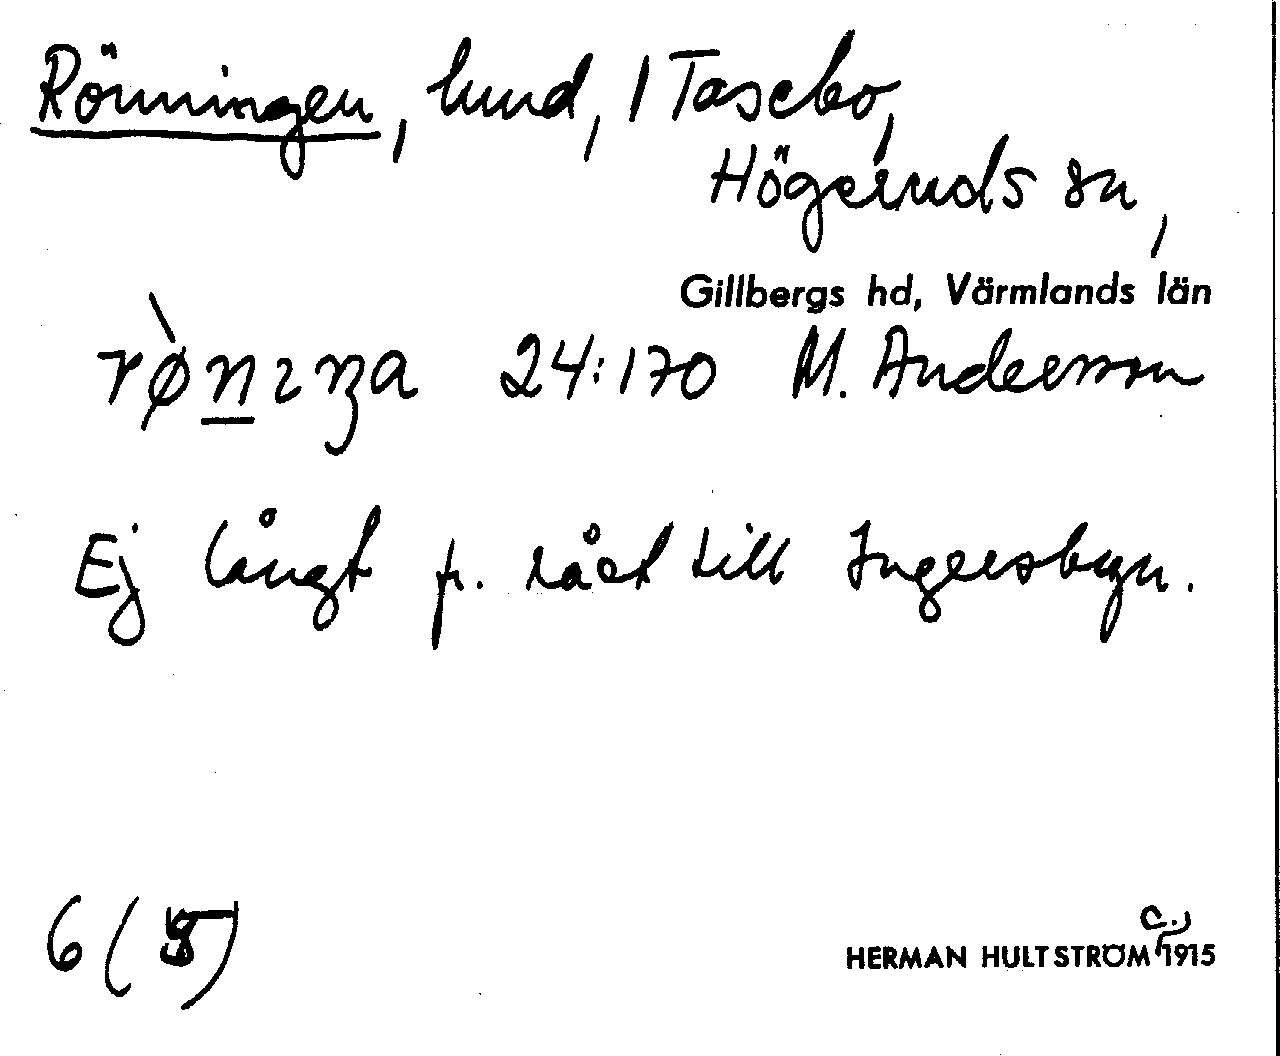 Rönningen, lund, 1 Tasebo,
Högeruds sn,
Gillbergs hd, Värmlands län
rø̀nɩŋa 24:170 M. Andersson
Ej långt fr. rået till Ingersbyn.
6 (5)
c.
HERMAN HULTSTRÖM 1915